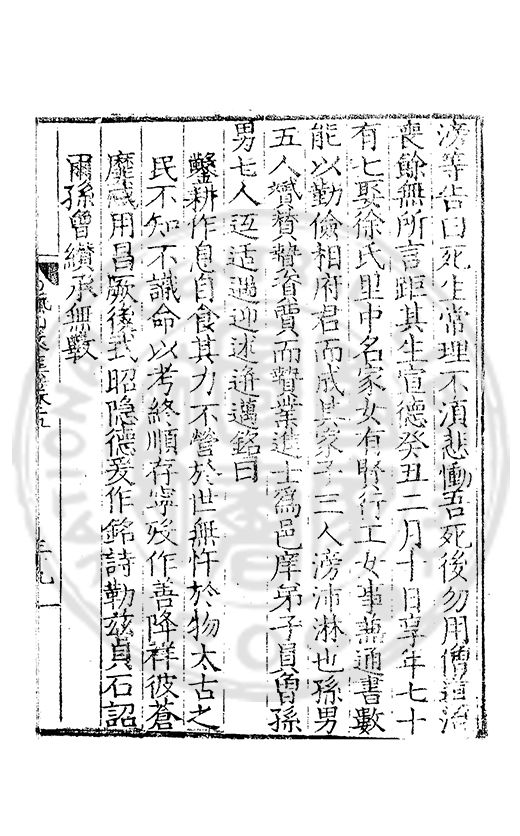 滂等告曰死生常理不須悲慟吾死後勿用僧道治
喪餘無所言距其生宣德癸丑二月十日享年七十
有七娶徐氏里中名家女有賢行工女事兼通書數
能以勤儉相府君而成其家子三人滂沛淋也孫男
五人贇贊贄賚賈而贄業進士爲邑庠弟子員曾孫
男七人迓适過迎述迕邁銘曰
鑿耕作息自食其力不營於世無忤於物太古之
民不知不識命以考終順存寧歿作善降祥彼蒼
靡忒用昌厥後式昭隱德爰作銘詩勒茲貞石詔
爾孫曾纘承無斁